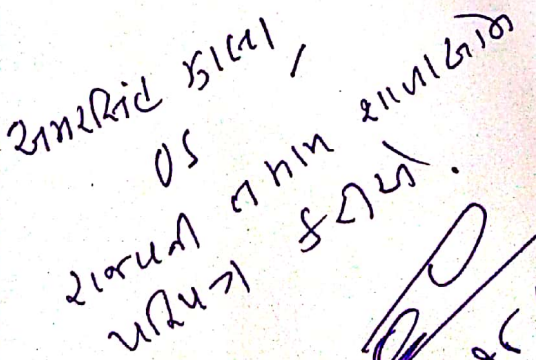 અમરસિંહ ઝાલા,
OS
રાજ્યની તમામ શાળાઓને
પરિપત્ર કરાશે.